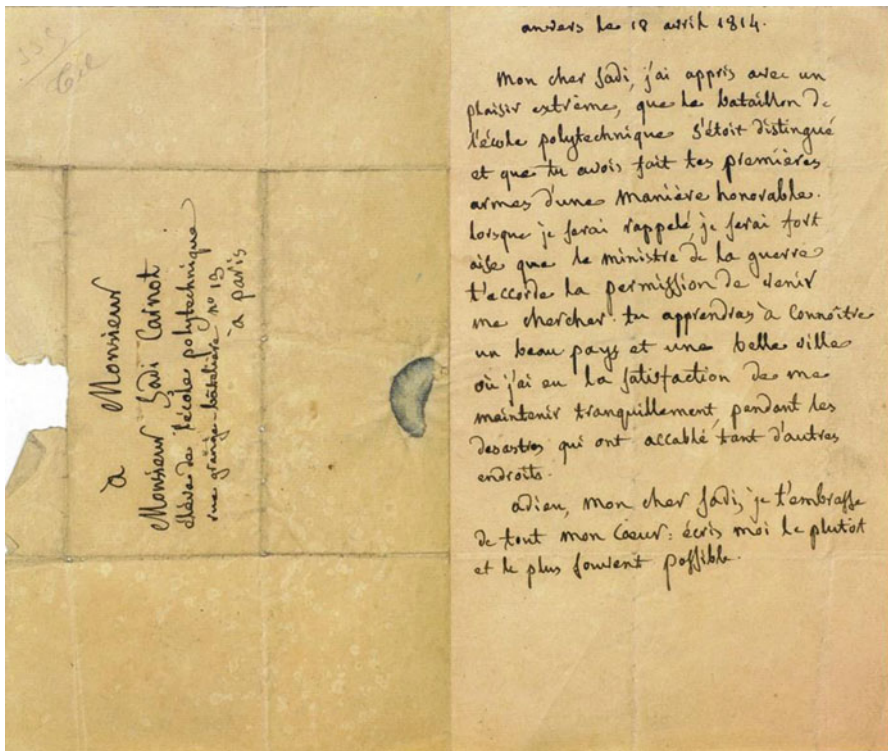 à Monsieur
Monsieur Sadi Carnot
élève de l'école polytechnique
rue grange-batelière n° 13
à paris
anvers le 18 avril 1814.
Mon cher Sadi, j'ai appris avec un
plaisir extrême, que le bataillon de
l'école polytechnique s'étoit distingué
et que tu avois fait tes premières
armes d'une manière honorable.
lorsque je serai rappelé, je serai fort
aise que le ministre de la guerre
t'accorde la permission de venir
me chercher. tu apprendras à connoître
un beau pays et une belle ville
où j'ai eu la satisfaction de me
maintenir tranquillement, pendant les
desastres qui ont accablé tant d'autres
endroits.
adieu, mon cher Sadi, je t'embrasse
de tout mon Coeur: écris moi le plutot
et le plus souvent possible.